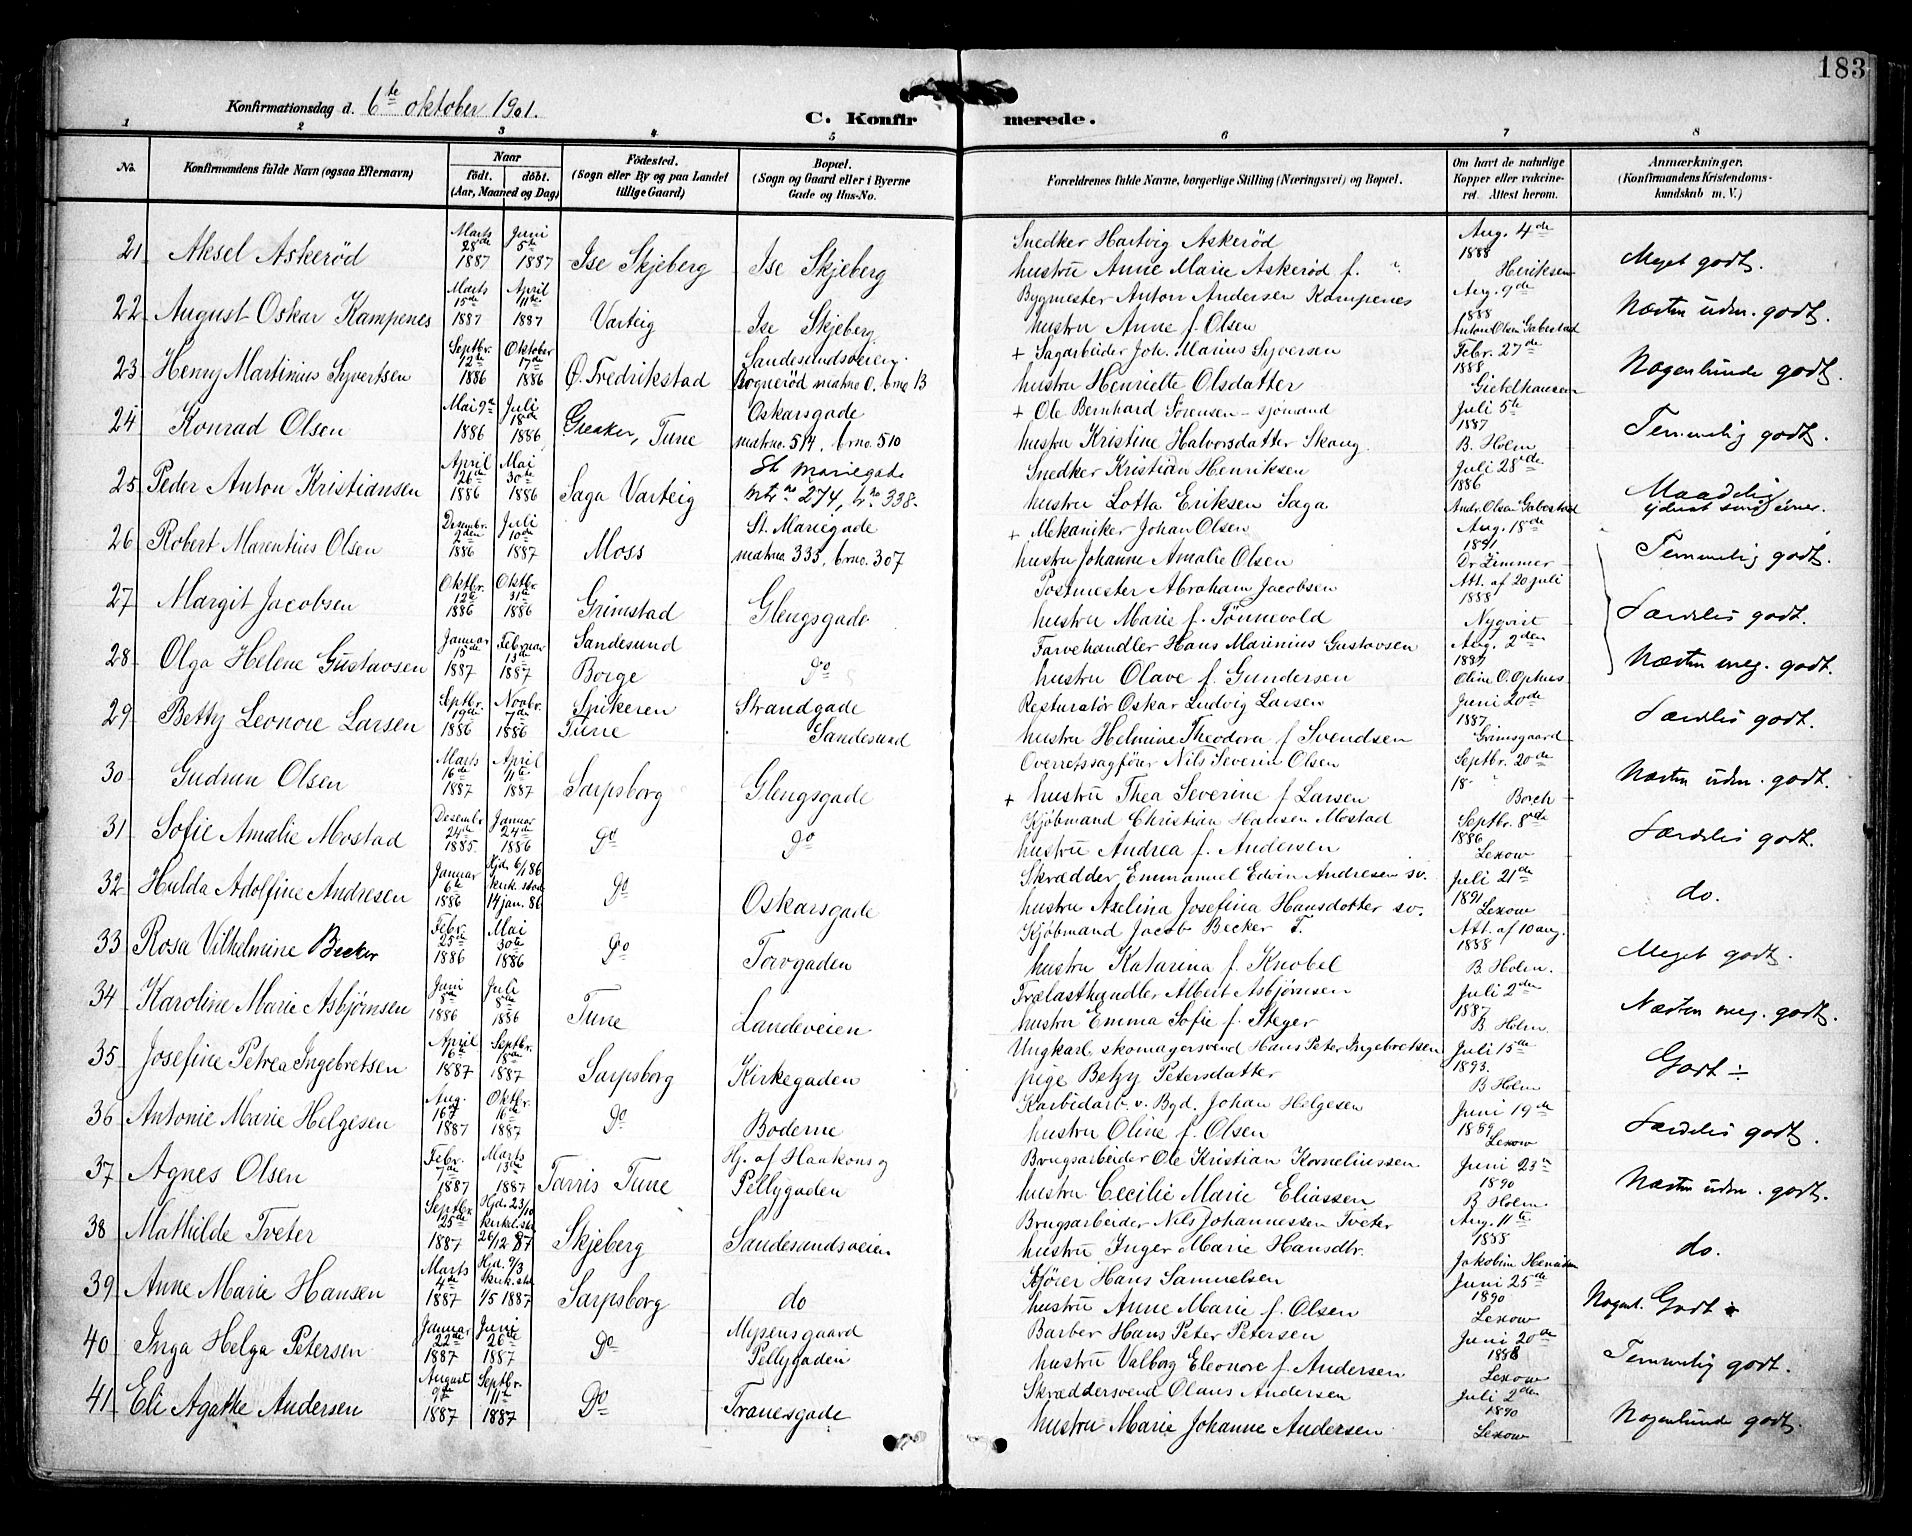 183
Konfirmationsdag d. 6te oktober 1901.
C. Konfirmerede.
1 2 3 4 5 6 7 8
No. Konfirmandens fulde Navn (ogsaa Efternavn) Naar født. døbt. (Aar, Maaned og Dag) Fødested. (Sogn eller By og paa Landet tillige Gaard) Bopæl. (Sogn og Gaard eller i Byerne Gade og Hus-No. Forældrenes fulde Navne, borgerlige Stilling (Næringsvei) og Bopæl. Om havt de naturlige Kopper eller vakcineret. Attest herom. Anmærkninger. (Konfirmandens Kristendomskundskab m. V.)
21 Aksel Askerød Marts 28de 1887 Juni 5te 1887 Ise Skjeberg Ise Skjeberg Snedker Hartvig Askerød hustru Anne Marie Askerød f. " Aug. 4de 1888 Heriksen Meget godt.
22 August Oskar Kampenes Marts 15de 1887 April 11te 1887 Varteig Ise Skjeberg Bygmester Anton Andersen Kampenes hustru Anne f. Olsen Aug. 9de 1888 Anton Olsen Gabestad Næsten üdm. godt.
23 Henry Martinius Syvertsen Septbr. 12te 1886 Oktober 17de 1886 Ø. Fredrikstad Sandesundsveien. Bognerød matrno 0. brno 13 + Sagarbeider Joh. Marius Syversen hustru Henriette Olsdatter Febr. 27de 1888 Giebelhausen Nogenlunde godt.
24 Konrad Olsen Mai 9de 1886 Juli 18de 1886 Greaker, Tune Oskarsgade matrno. 514. brno. 510 + Ole Bernhard Sørensen - sjømand hustru Kristine Halvorsdatter Skaug Juli 5te 1887 B. Holm Temmelig godt.
25 Peder Anton Kristiansen April 26de 1886 Mai 30te 1886 Saga Varteig St. Mariegade mtr no 274, br no 338. Snedker Kristian Henriksen hustru Lotta Eriksen Saga Juli 28de 1886 Andr. Olsen Gabestad Maadelig
26 Robert Marentius Olsen Desembr. 2den 1886 Juli 10de 1887 Moss St. Mariegade matrno 333. brno. 307 + Mekaniker Johan Olsen hustru Johanne Amalie Olsen Aug. 18de 1891 Dr Zimmer Temmelig godt.
27 Margit Jacobsen Oktbr. 12te 1886 Oktbr. 31te 1886 Grimstad Glengsgade Postmester Abraham Jacobsen hustru Marie f. Tönnevold Att. af 20 juli 1888 Nyqvist Særdeles godt.
28 Olga Helene Gustavsen Januar 15de 1887 Februar 13de 1887 Sandesund Borge do Farvehandler Hans Marinius Gustavsen hustru Olave f. Gundersen Aug. 2den 1887 Oline O. Ophus Næsten meg. godt.
29 Betty Leonore Larsen Septbr. 19de 1886 Novbr. 7de 1886 Spikeren Tune Strandgade Sandesund Resturatör Oskar Ludvig Larsen hustru Helmine Theodora f. Svendsen Juni 20de 1887 Grimsgaard Særdeles godt.
30 Gudrun Olsen Marts 16de 1887 April 11te 1887 Sarpsborg Glengsgade Overretssagfører Nils Severin Olsen + hustru Thea Severine f. Larsen Septbr. 20de 18- Borch Næsten üdm. godt.
31 Sofie Amalie Mostad Desembr. 24de 1885. Januar 24de 1886 do do Kjøbmand Christian Hansen Mostad hustru Andrea f. Andersen Septbr. 8de 1886 Lexow Særdeles godt.
32 Hulda Adolfine Andresen Januar 6te 1886 Hjd. 6/1 86 14 jan. 86 do Oskarsgade Skrædder Emmanuel Edvin Andresen sv. hustru Axelina Josefina Hansdotter sv. Juli 21de 1891 Lexow do.
33 Rosa Vilhelmine Becker Febr. 25de 1886 Mai 30te 1886 do Torvgaden Kjøbmand Jacob Becker T. hustru Katarina f. Knobel Att. af 10 aug. 1888 B. Holm. Meget godt.
34 Karoline Marie Asbjørnsen Juni 8de 1886 Juli 8de 1886 Tune Landeveien Trælasthandler Albert Asbjørnsen hustru Emma Sofie f. Steger Juli 2den 1887 B Holm. Næsten meg. godt.
35 Josefine Petrea Ingebretsen April 16de 1887 Septbr. 18de 1887 Sarpsborg Kirkegaden Ungkarl skomagersvend Hans Peter Ingebretsen pige Betzy Petersdatter Juli 15de 1893. B Holm Godt ÷
36 Antonie Marie Helgesen Aug. 16de 1887 Oktbr. 16te 1887 do Boderne Karbidarb. v. Bgd. Johan Helgesen hustru Oline f. Olsen Juni 19de 1889 Lexow Særdeles godt.
37 Agnes Olsen Febr. 7de 1887 Marts 13de 1887 Tarris Tune Hj. af Haakons og Pellygaden Brugsarbeider Ole Kristian Korneliussen hustru Cecilie Marie Eliassen Juni 23de 1890 B. Holm. Næsten üdm. godt.
38 Mathilde Tveter Septbr. 25de 1887 Hjd. 23/10 26/12 87 Skjeberg Sandesundsveien Brugsarbeider Nils Johannessen Tveter hustru Inger Marie Hansdtr. Aug. 11te 1888 do.
39 Anne Marie Hansen Marts 4de 1887 Hjd. 9/3 1/5 1887 Sarpsborg do Kjører Hans Samuelsen hustru Anne Marie f. Olsen Juni 25de 1890 Lexow Nogenl. Godt
40 Inga Helga Petersen Januar 22de 1887 Juni 26de 1887 do Mysensgaard Pellygaden Barber Hans Peter Petersen hustru Valborg Eleonore f. Andersen Juni 20de 1888 Lexow Temmelig godt.
41 Eli Agathe Andersen August 9de 1887 Septbr. 11te 1887 do Tranesgade Skræddersvend Olaus Andersen hustru Marie Johanne Andersen Juli 2den 1890 Lexow Nogenlunde godt.